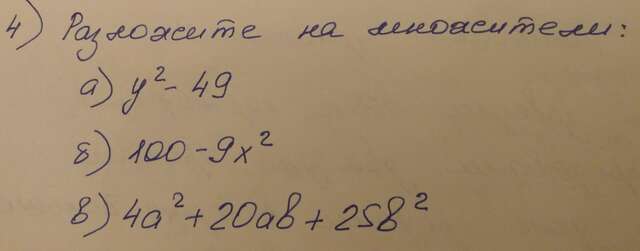 4) Разложите на множители:
а) y² - 49
б) 100 - 9x²
в) 4a² + 20ab + 25b²